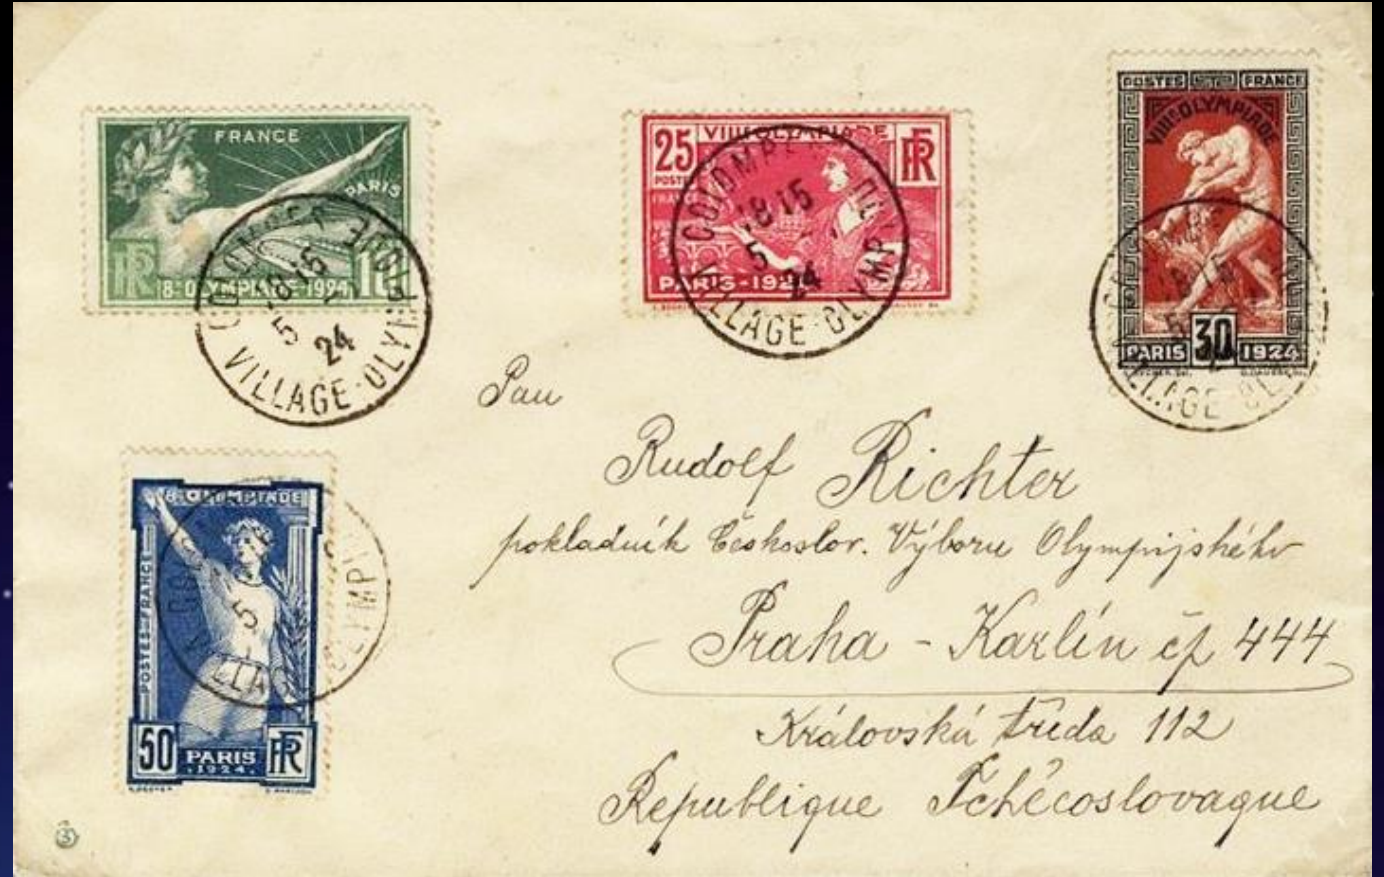 FRANCE
PARIS
RF
8E OLYMPIADE 1924
10
COLOMBES
18 15
5
24
VILLAGE-OLYMPIQUE
25
VIIIE OLYMPIADE
RF
POSTES
FRANCE
PARIS-1924
COLOMBES
18 15
5
24
VILLAGE-OLYMPI
POSTES FRANCE
VIIIE OLYMPIADE
PARIS 30 1924
18 15
5
VILLAGE-OLYMPI
8E OLYMPIADE
POSTES FRANCE
50
PARIS
1924
RF
5
VILLAGE OLYMPI
Pan
Rudolf Richter
pokladník Českoslov. Výboru Olympijského
Praha - Karlín čp 444
Královská třída 112
Republique Tchécoslovaque
3